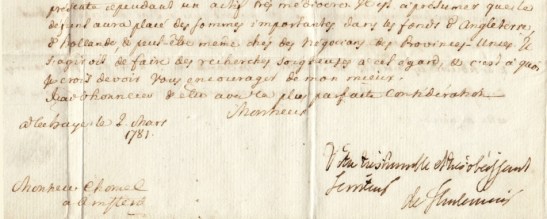 présente cependant un actif très médiocre. Il est à présumer que le
défunt aura placé des sommes importantes dans les fonds d'Angleterre,
d'Hollande & peut-être même chés des Négocians des Provinces-Unies. Il
s'agiroit de faire des recherches soigneuses a cet égard, & c'est à quoi
je crois devoir Vous encourager de mon mieux.
J'ai l'honneur d'être avec la plus parfaite Considération
Monsieur
a la haye le 2 Mars
1781.
Votre très humble & très obéissant
Serviteur
de
Monsieur Chomel
a Amsterd